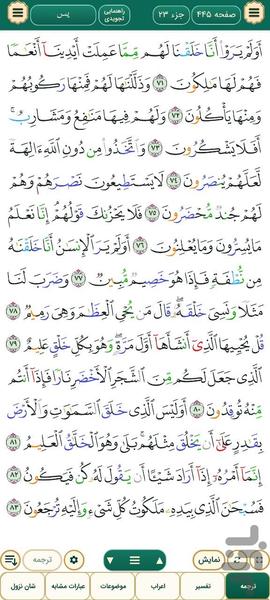 صفحه ۴۴۵
جزء ۲۳
راهنمایی تجویدی
يس
أَوَلَمْ يَرَوْا أَنَّا خَلَقْنَا لَهُم مِّمَّا عَمِلَتْ أَيْدِينَا أَنْعَٰمًا
فَهُمْ لَهَا مَٰلِكُونَ ۷۱ وَذَلَّلْنَٰهَا لَهُمْ فَمِنْهَا رَكُوبُهُمْ
وَمِنْهَا يَأْكُلُونَ ۷۲ وَلَهُمْ فِيهَا مَنَٰفِعُ وَمَشَارِبُ
أَفَلَا يَشْكُرُونَ ۷۳ وَاتَّخَذُوا مِن دُونِ اللَّهِ ءَالِهَةً
لَّعَلَّهُمْ يُنصَرُونَ ۷۴ لَا يَسْتَطِيعُونَ نَصْرَهُمْ وَهُمْ
لَهُمْ جُندٌ مُّحْضَرُونَ ۷۵ فَلَا يَحْزُنكَ قَوْلُهُمْ إِنَّا نَعْلَمُ
مَا يُسِرُّونَ وَمَا يُعْلِنُونَ ۷۶ أَوَلَمْ يَرَ الْإِنسَٰنُ أَنَّا خَلَقْنَٰهُ
مِن نُّطْفَةٍ فَإِذَا هُوَ خَصِيمٌ مُّبِينٌ ۷۷ وَضَرَبَ لَنَا
مَثَلًا وَنَسِيَ خَلْقَهُ قَالَ مَن يُحْيِ الْعِظَٰمَ وَهِيَ رَمِيمٌ ۷۸
قُلْ يُحْيِيهَا الَّذِي أَنشَأَهَا أَوَّلَ مَرَّةٍ وَهُوَ بِكُلِّ خَلْقٍ عَلِيمٌ ۷۹
الَّذِي جَعَلَ لَكُم مِّنَ الشَّجَرِ الْأَخْضَرِ نَارًا فَإِذَا أَنتُم
مِّنْهُ تُوقِدُونَ ۸۰ أَوَلَيْسَ الَّذِي خَلَقَ السَّمَٰوَٰتِ وَالْأَرْضَ
بِقَٰدِرٍ عَلَىٰ أَن يَخْلُقَ مِثْلَهُم بَلَىٰ وَهُوَ الْخَلَّٰقُ الْعَلِيمُ ۸۱
إِنَّمَا أَمْرُهُ إِذَا أَرَادَ شَيْئًا أَن يَقُولَ لَهُ كُن فَيَكُونُ ۸۲
فَسُبْحَٰنَ الَّذِي بِيَدِهِ مَلَكُوتُ كُلِّ شَيْءٍ وَإِلَيْهِ تُرْجَعُونَ ۸۳
نمایش
ترجمه
ترجمه
تفسیر
اعراب
موضوعات
عبارات مشابه
شان نزول